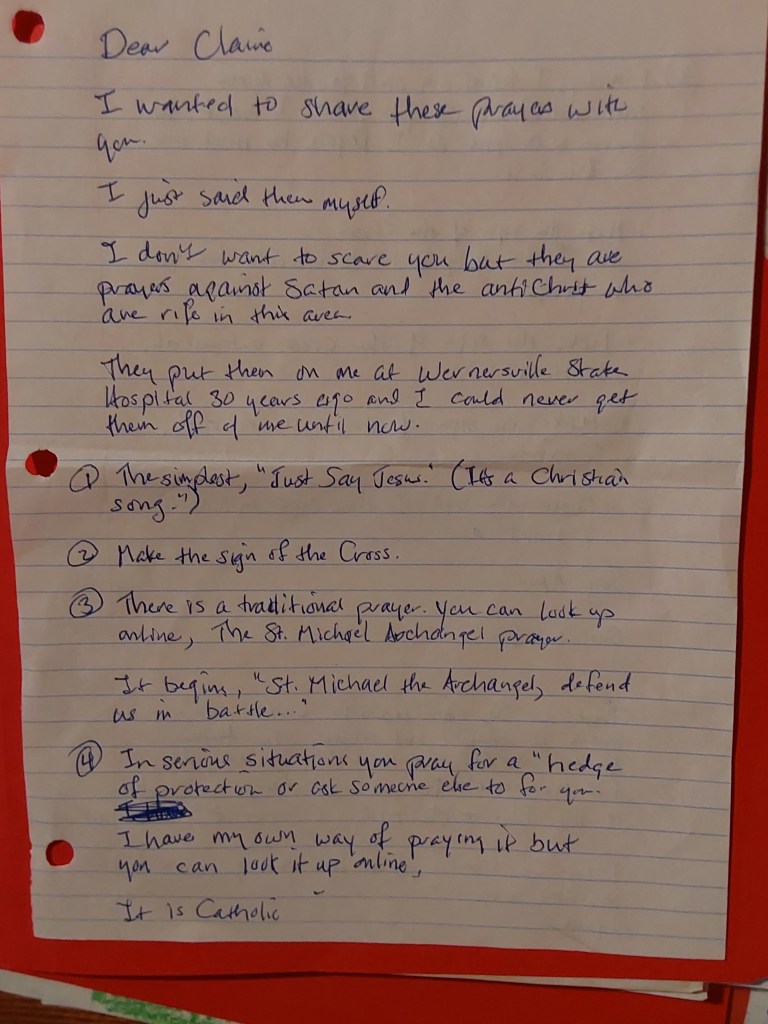 Dear Claire
I wanted to share these prayers with
you.
I just said them myself.
I don't want to scare you but they are
prayers against Satan and the antiChrist who
are rife in this area
They put them on me at Wernersville State
Hospital 30 years ago and I could never get
them off of me until now.
① The simplest, "Just Say Jesus." (It's a Christian
song.")
② Make the sign of the Cross.
③ There is a traditional prayer. You can look up
online, The St. Michael Archangel prayer.
It begins, "St. Michael the Archangel, defend
us in battle..."
④ In serious situations you pray for a "hedge
of protection or ask someone else to for you.
I have my own way of praying it but
you can look it up online,
It is Catholic